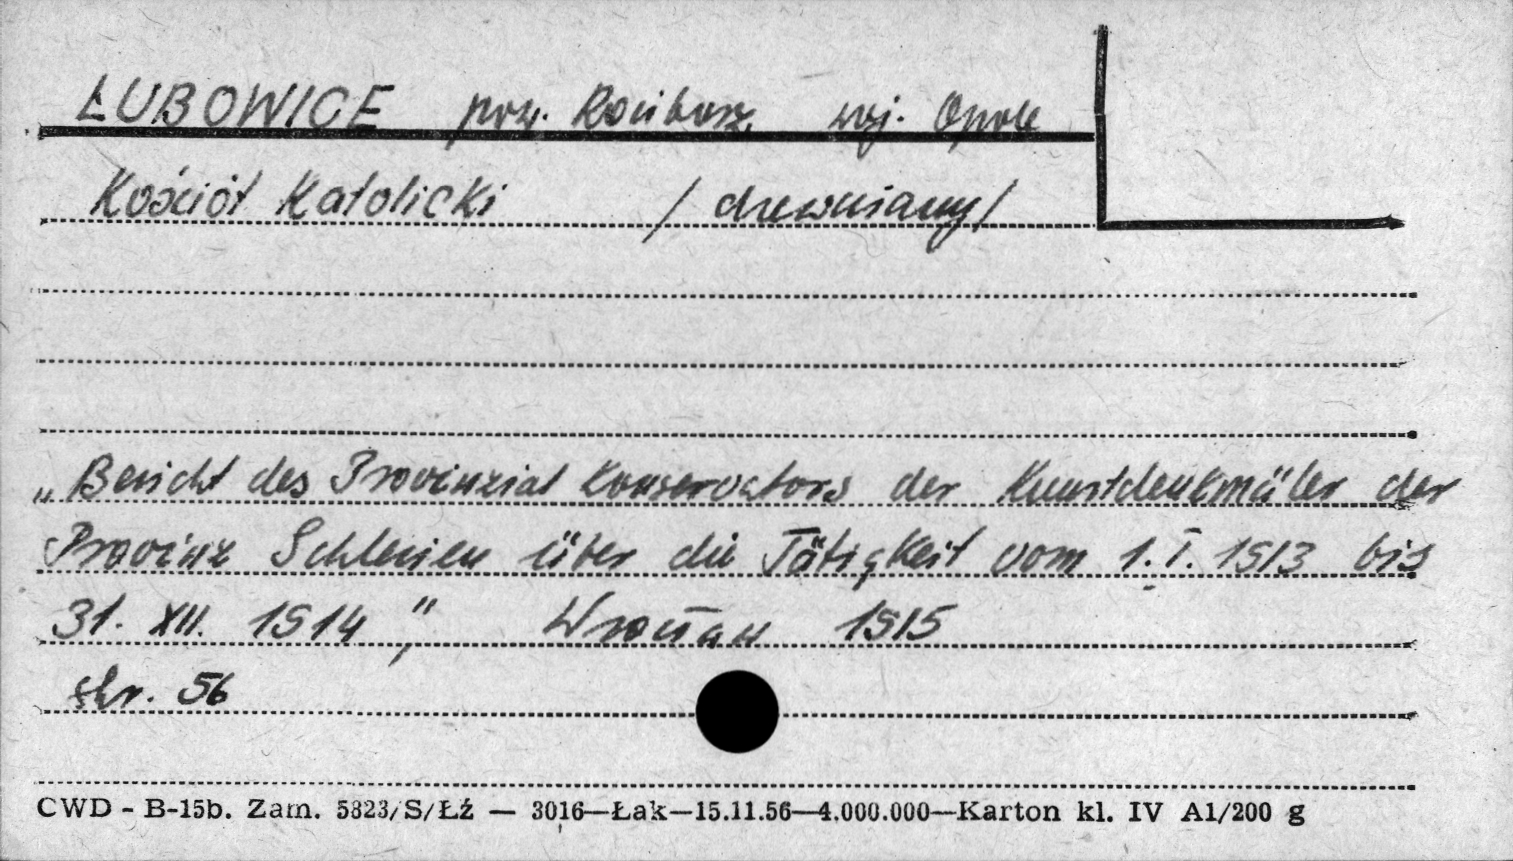 ŁUBOWICE pow. Racibórz, woj. Opole
Kościół Katolicki /drewniany/
„Bericht des Provinzial Konservators der Kunstdenkmäler der
Provinz Schlesien über die Tätigkeit vom 1.I.1913 bis
31. XII. 1914", Wrocław 1915
str. 56
CWD - B-15b. Zam. 5823/S/Łź — 3016—Łak—15.11.56—4.000.000—Karton kl. IV A1/200 g